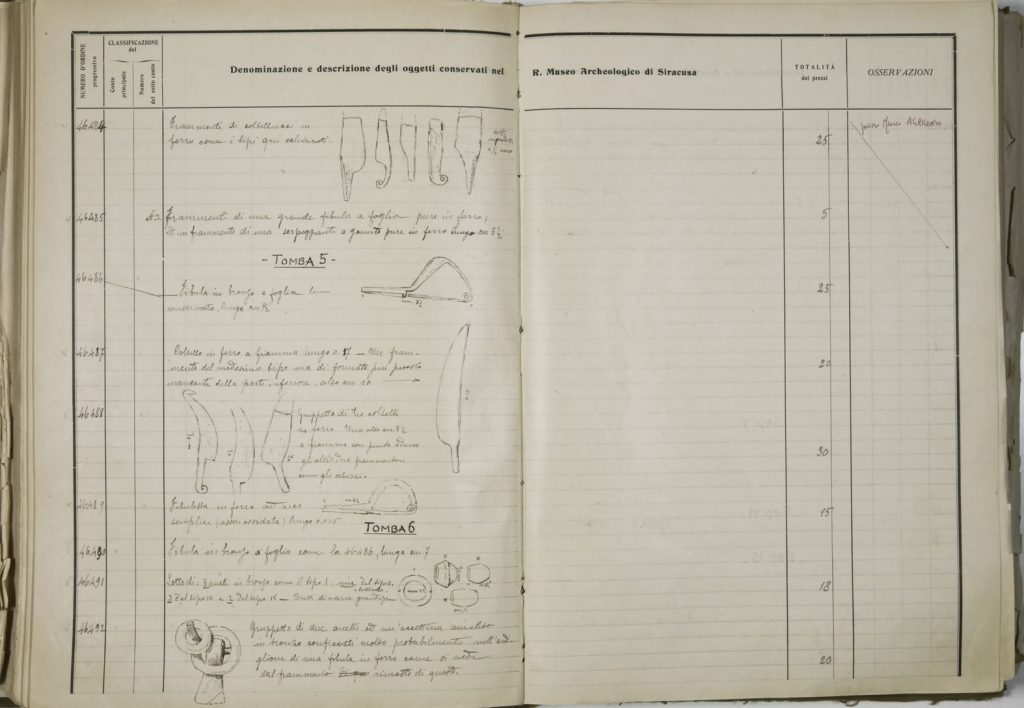 NUMERO D'ORDINE progressivo
CLASSIFICAZIONE del
Conto principale
Numero del sotto conto
Denominazione e descrizione degli oggetti conservati nel R. Museo Archeologico di Siracusa
TOTALITÀ dei prezzi
OSSERVAZIONI
46484 Frammenti di coltellucci in
ferro come i tipi qui schizzati.
25
Museo AGRIGENTO
46485 N. 2 Frammenti di una grande fibula a foglia pure in ferro;
ed un frammento di una serpeggiante a gomito pure in ferro lungo cm 5½
5
- TOMBA 5 -
46486 Fibula in bronzo a foglia ben
conservata, lunga cm
25
46487 Coltello in ferro a fiamma lungo 0.17 — Un fram-
mento del medesimo tipo ma di formato più piccolo
mancante della parte inferiore, alto cm 10.
20
46488 Gruppetto di tre coltelli
in ferro. Uno alto cm
a fiamma con punta
gli altri due frammentari
come gli schizzi.
30
46489 Fibuletta in ferro ad arco
semplice (assai ossidata) lungo 0.045
15
TOMBA 6
46490 Fibula in bronzo a foglia come la 46486, lunga cm 7
46491 Lotto di: 3 anelli in bronzo come il tipo I, una del tipo
3 del tipo III e 2 del tipo IV — Tutti di varie grandezze
18
46492 Gruppetto di due anelli ed un'
in bronzo molto probabilmente nell'ar-
diglione di una fibula in ferro come si vede
dal frammento rimasto di questo.
20